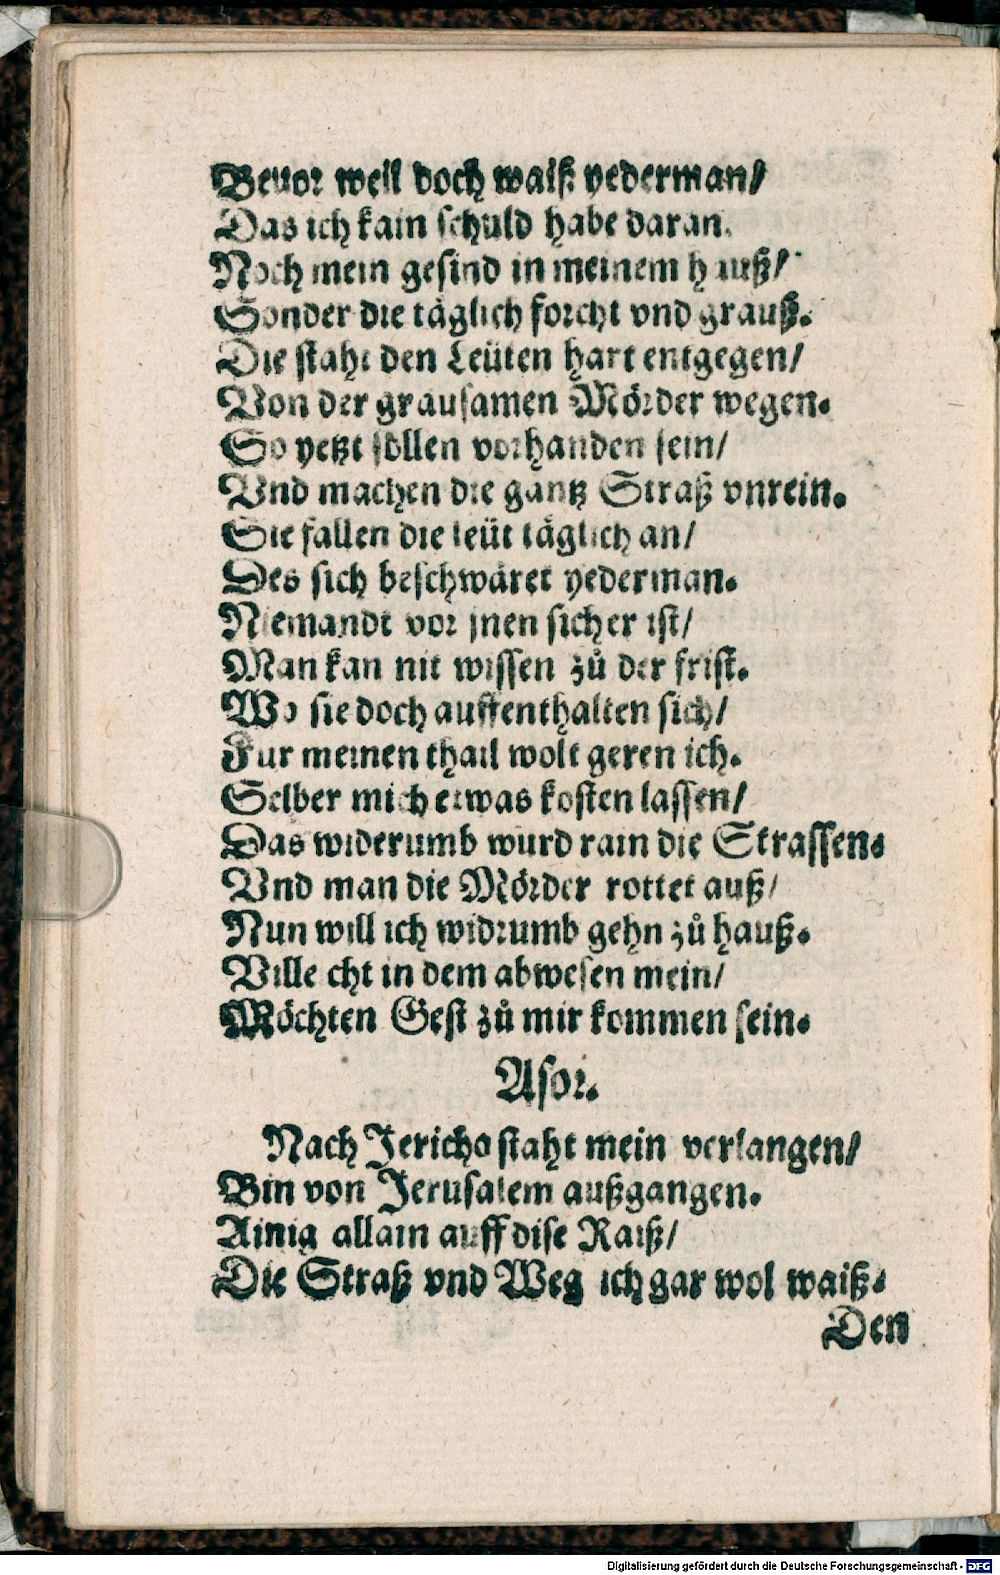 Beuor weil doch waiß yederman/
Das ich kain schuld habe daran.
Noch mein gesind in meinem hauß/
Sonder die täglich forcht vnd grauß.
Die staht den Leüten hart entgegen/
Von der grausamen Mörder wegen.
So yetzt söllen vorhanden sein/
Vnd machen die gantz Straß vnrein.
Sie fallen die leüt täglich an/
Des sich beschwäret yederman.
Niemandt vor jnen sicher ist/
Man kan nit wissen zů der frist.
Wo sie doch auffenthalten sich/
Fur meinen thail wolt geren ich.
Selber mich etwas kosten lassen/
Das widerumb wurd rain die Strassen.
Vnd man die Mörder rottet auß/
Nun will ich widrumb gehn zů hauß.
Villecht in dem abwesen mein/
Möchten Gest zů mir kommen sein.
Asor.
Nach Jericho staht mein verlangen/
Bin von Jerusalem außgangen.
Ainig allain auff dise Raiß/
Die Straß vnd Weg ich gar wol waiß.
Den
Digitalisierung gefördert durch die Deutsche Forschungsgemeinschaft - DFG